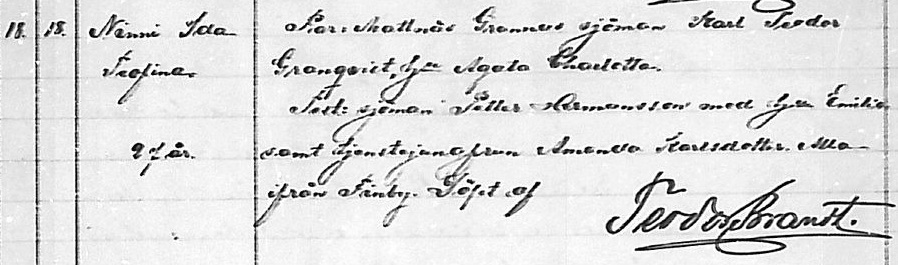 18. 18. Ninni Ida Par: Mattnäs Grannas sjöman Karl Teodor
Trofina. Granqvist, hu Agata Charlotta.
Test: sjöman Petter Hermansson med hu Emilia
27 år. samt tjenstejungfrun Amanda Karlsdotter. Alla
ifrån Finby. Döpt af
Teodor Brandt.